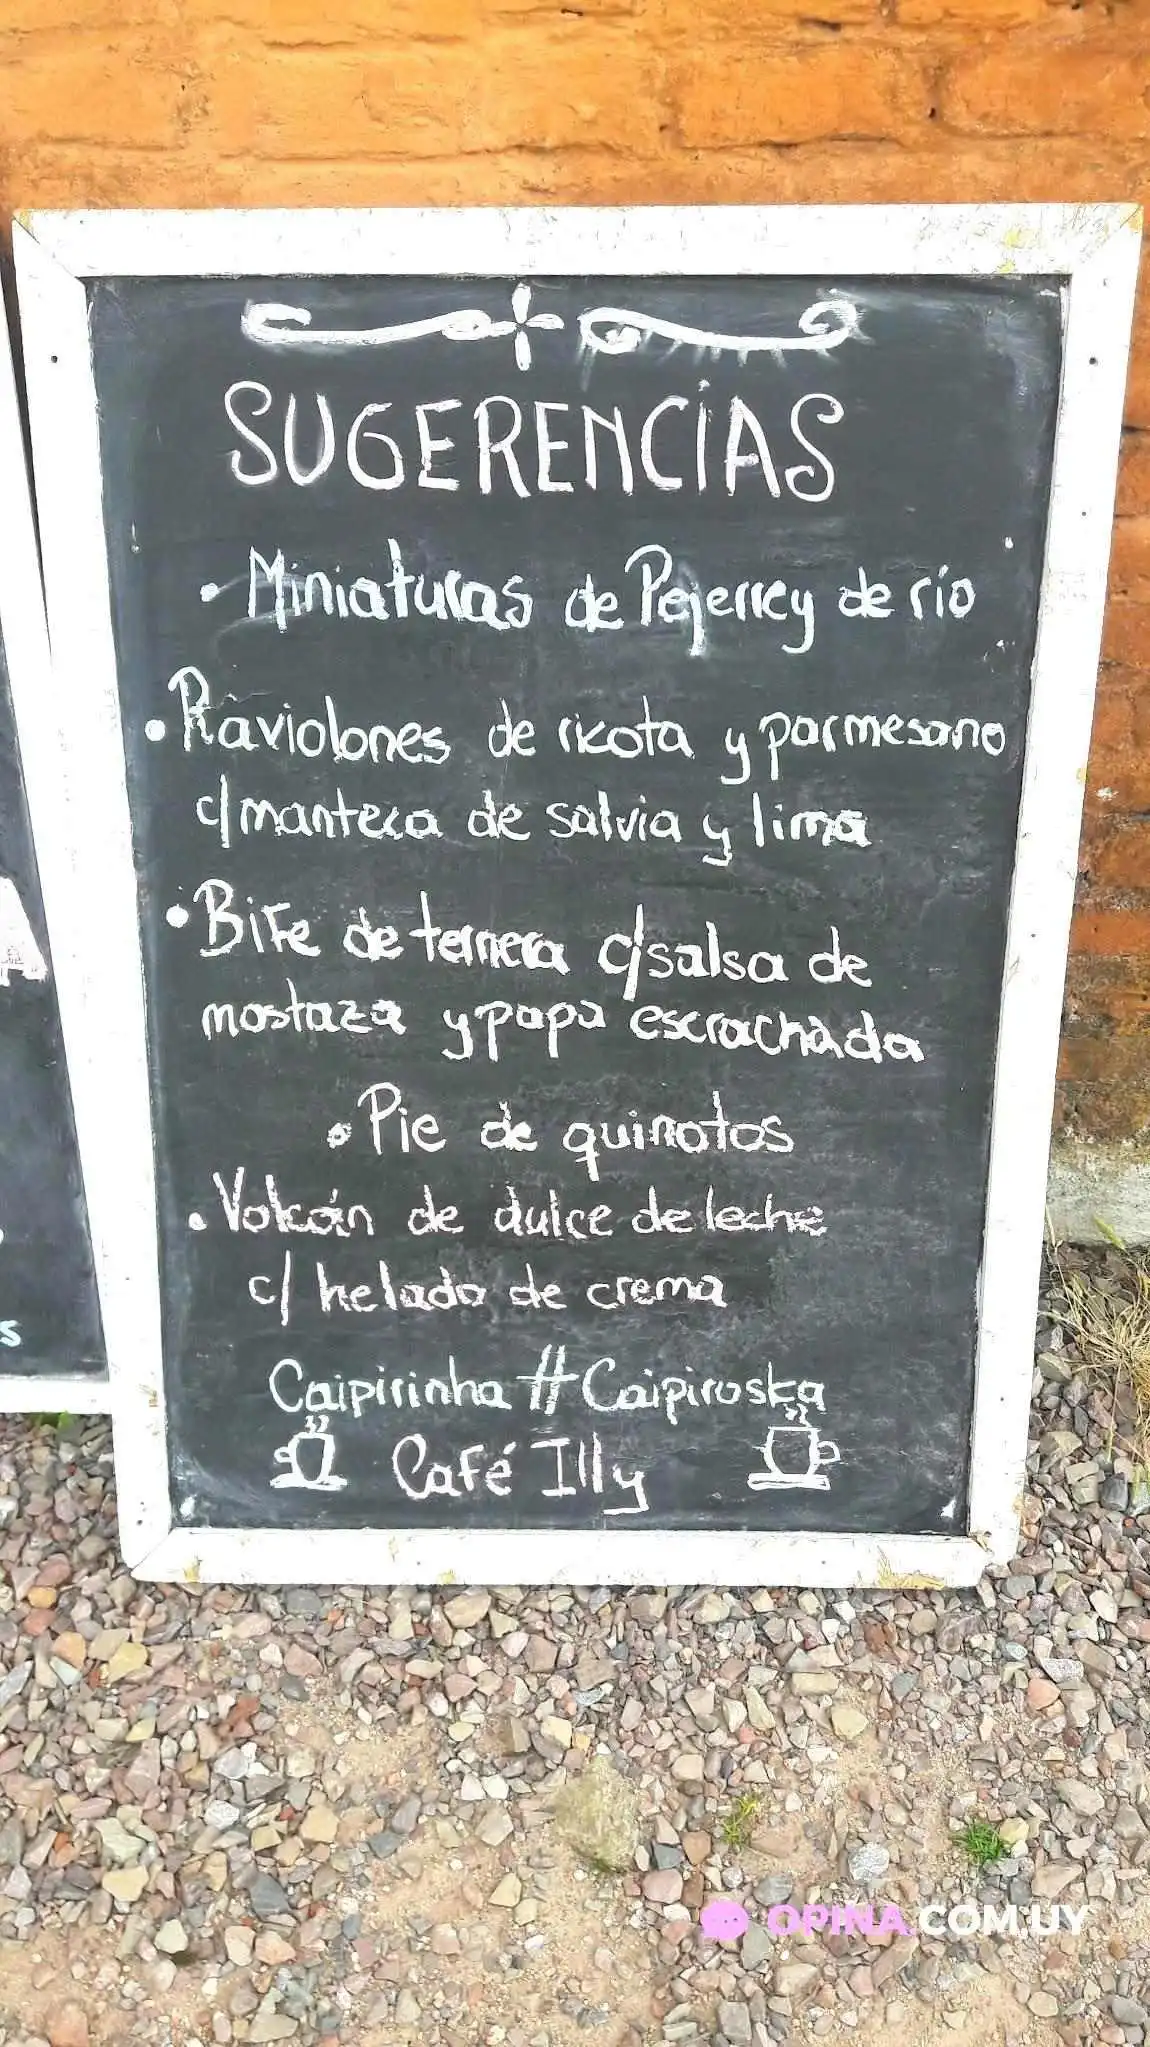 SUGERENCIAS
• Miniaturas de Pejerrey de río
• Raviolones de ricota y parmesano
c/manteca de salvia y lima
• Bife de ternera c/salsa de
mostaza y papa escrachada
• Pie de quinotos
• Volcán de dulce de leche
c/ helado de crema
Caipirinha # Caipiroska
Café Illy
A
s
OPINA.COM.UY